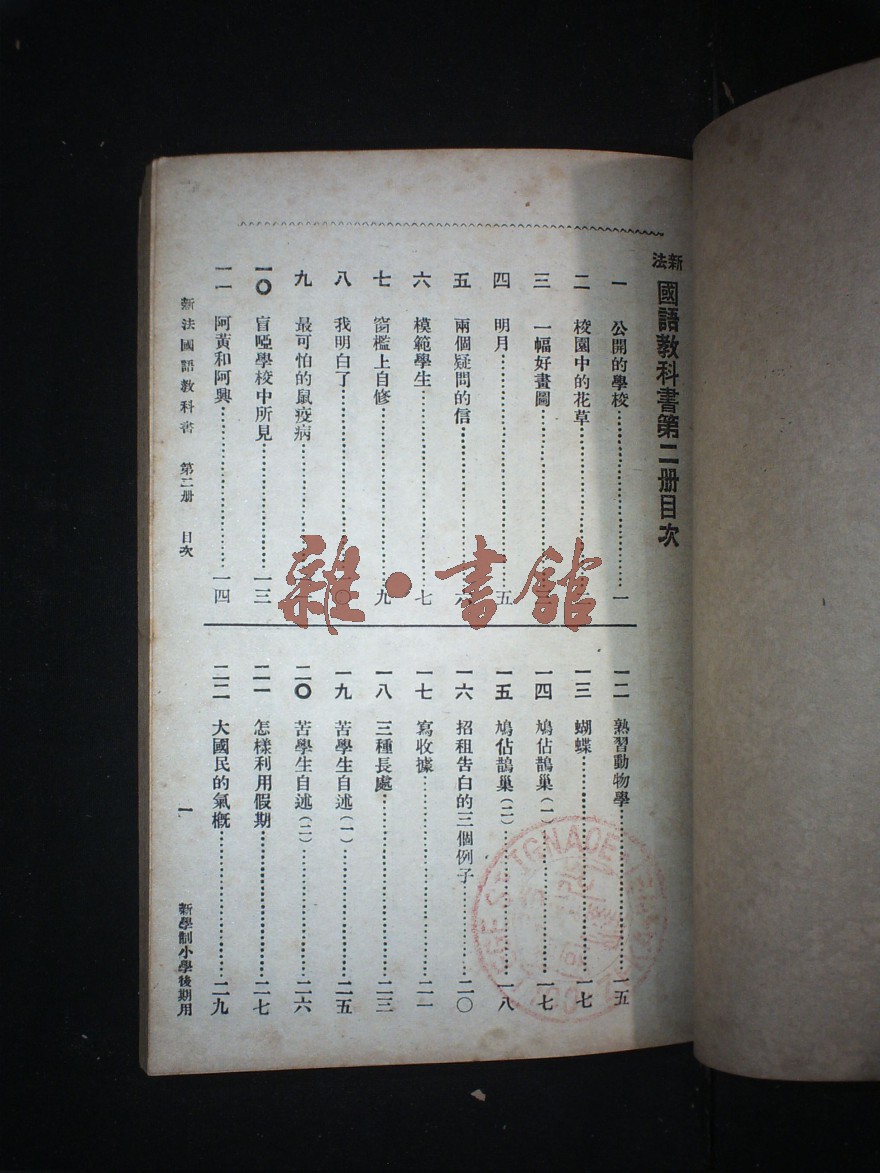 新法國語教科書第二册目次
一 公開的學校 一
二 校園中的花草
三 一幅好畫圖
四 明月 五
五 兩個疑問的信 六
六 模範學生 七
七 窗檻上自修 九
八 我明白了 一〇
九 最可怕的鼠疫病
一〇 盲啞學校中所見 一三
一一 阿黃和阿興 一四
一二 熟習動物學 一五
一三 蝴蝶 一七
一四 鳩佔鵲巢(一) 一七
一五 鳩佔鵲巢(二) 一八
一六 招租告白的三個例子 二〇
一七 寫收據 二一
一八 三種長處 二三
一九 苦學生自述(一) 二五
二〇 苦學生自述(二) 二六
二一 怎樣利用假期 二七
二二 大國民的氣概 二九
新法國語教科書 第二册 目次 一 新學制小學後期用
雜·書館
ST IGNACE